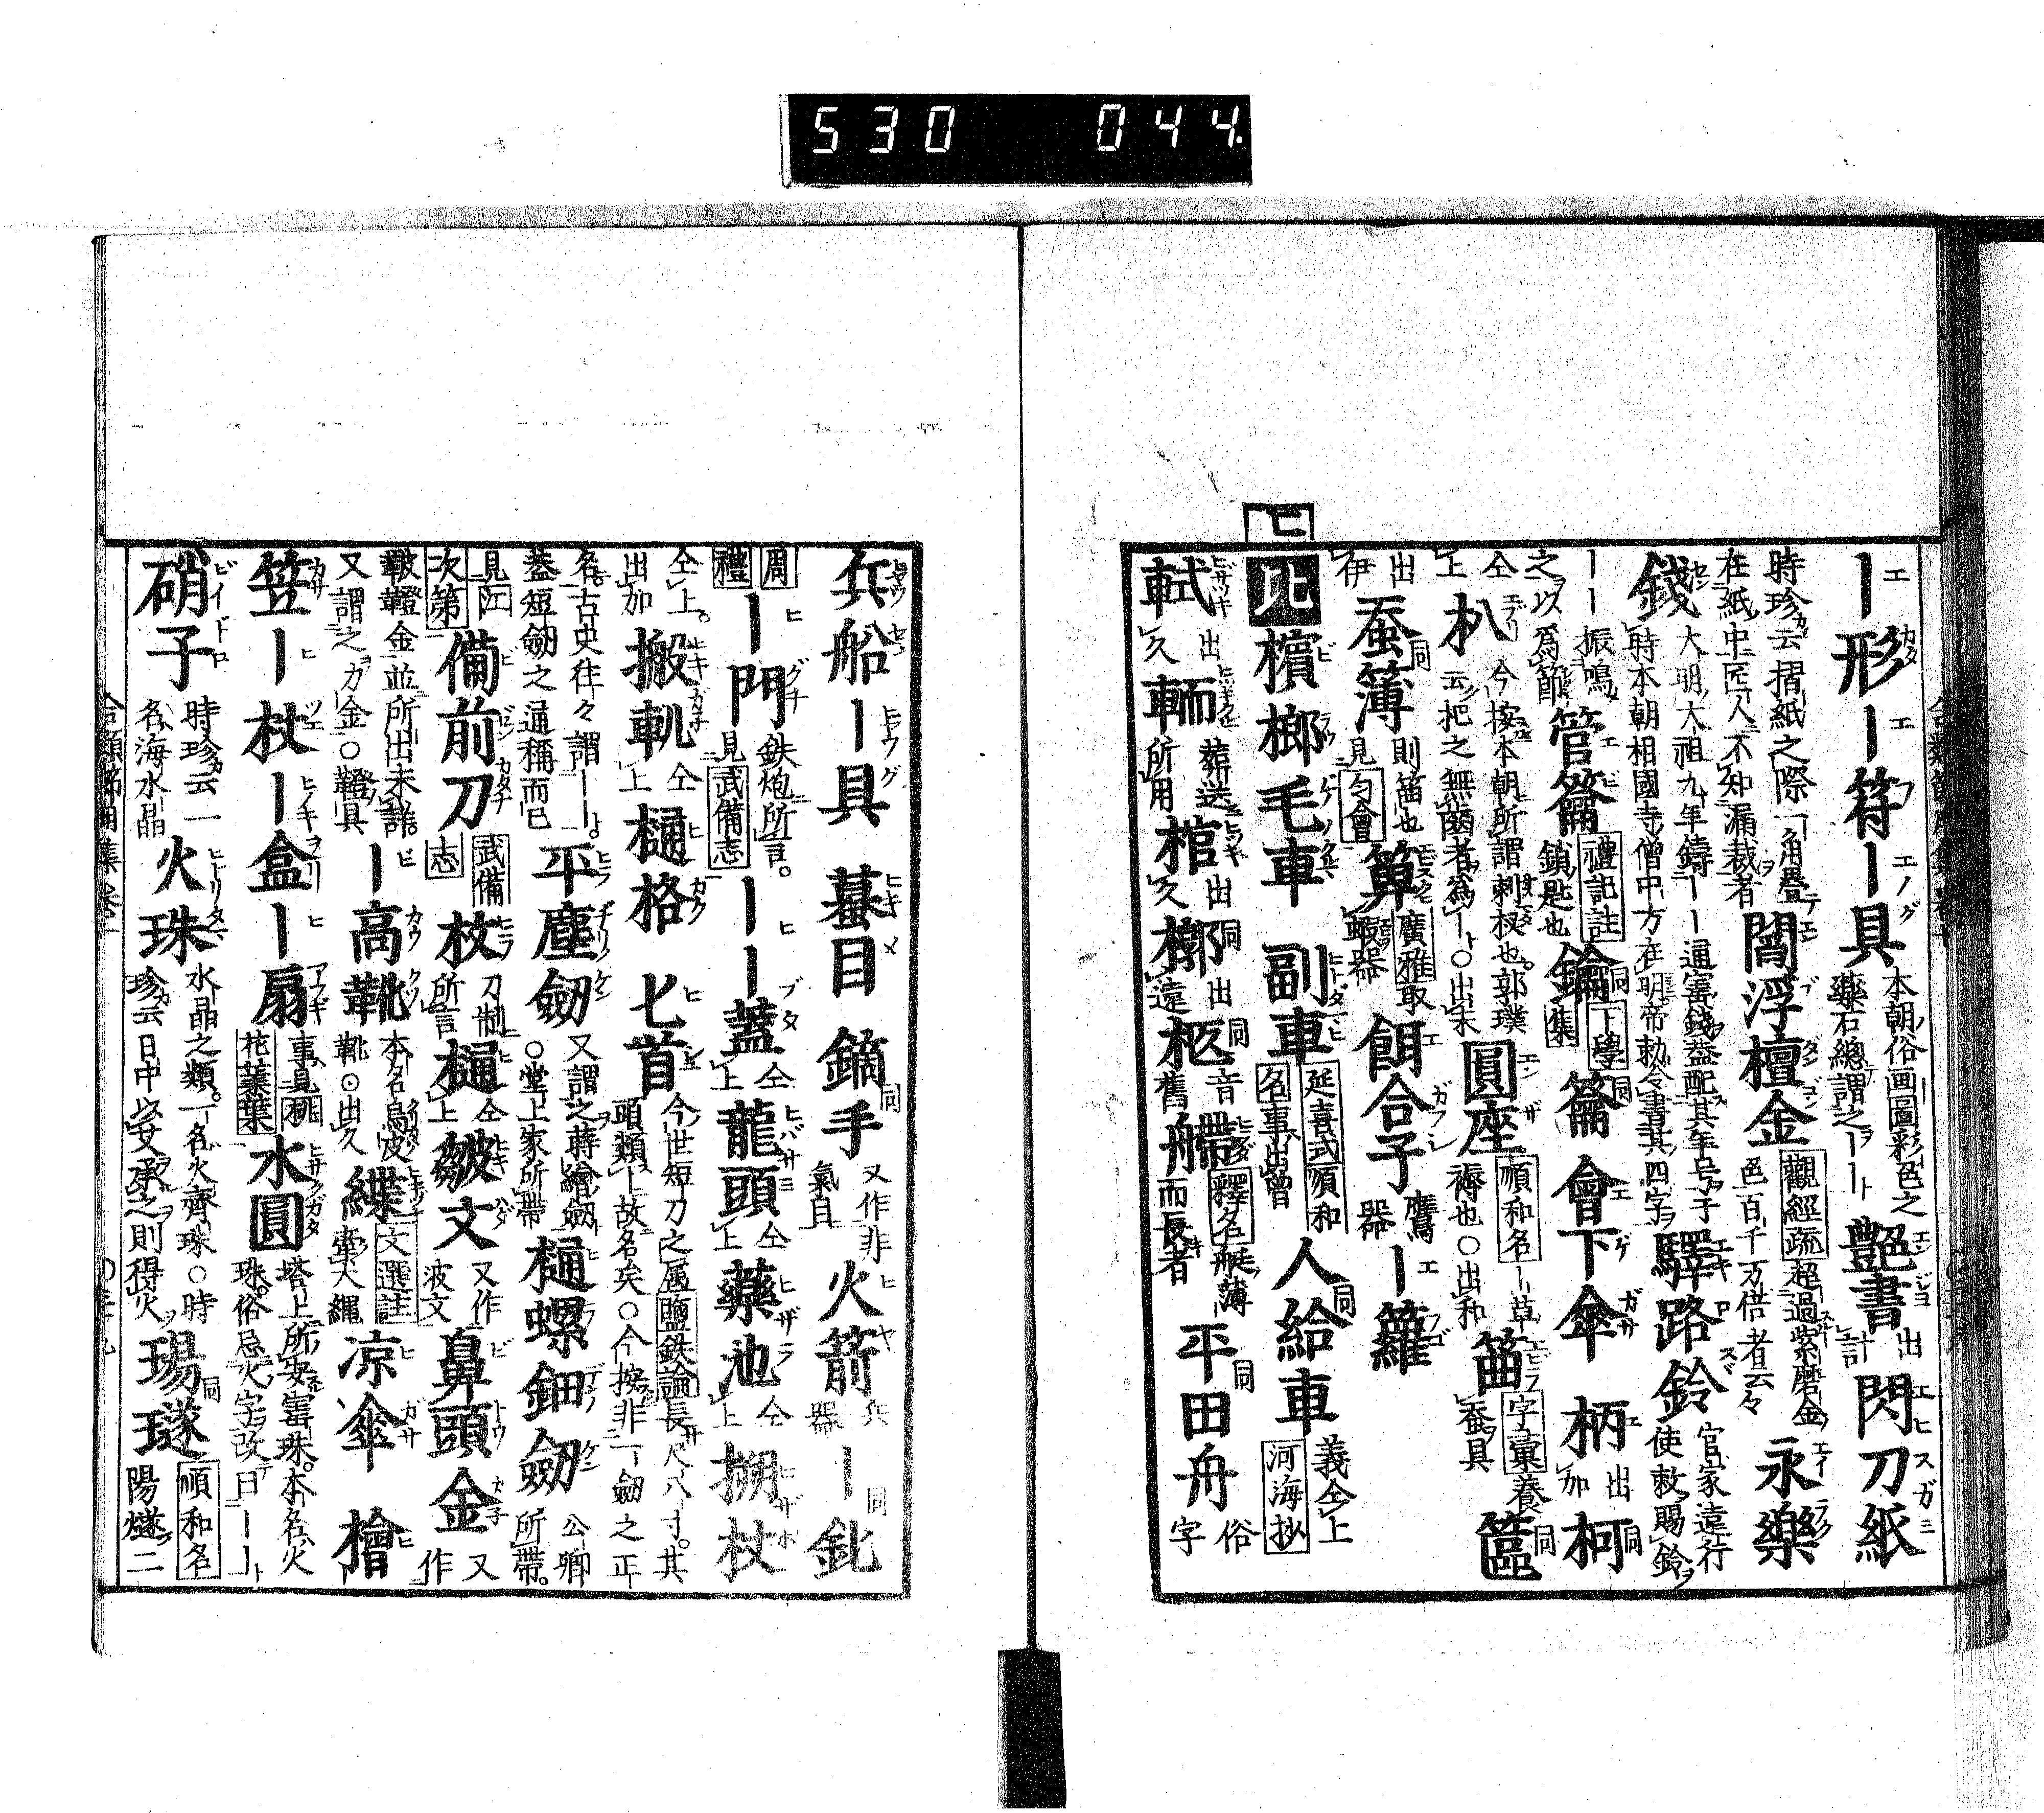 530 044.
｜形｜符｜具 本朝俗画圖彩色之藥石總謂之｜｜ 艶書 出計 閃刀紙
時珍云摺紙之際一角疊在紙中匠人不知漏裁者 閻浮檀金 觀經疏超過紫磨金色百千万倍者云々 永樂
錢 大明大祖九年鑄｜｜通寳錢益配其年号于時本朝相國寺僧中方在明帝勅令書其四字 驛路鈴 官家遠行使敕賜鈴
｜｜振鳴之以爲節 管籥 禮記註鎖匙也 鑰 同下學集 籥 同 會下傘 柄 出加 柯 同
仝上 朳 今按本朝所謂刺杈也郭璞云把之無齒者為｜○出末 圓座 順和名｜草褥也○出和 笛 字彙養蚕具 筁 同
出伊 蚕薄 同則笛也見匀會 箅 廣雅取蝦器 餌合子 鷹器 ｜籮
ヒ 比 檳榔毛車 副車 延喜式順和名事出曾 人給車 同義仝上河海抄
軾 出久 輀 葬送車所用 棺 出久 槨 同出遠 柩 同音舊 艜 釋名艇薄而長者 平田舟 同俗字
兵船｜具 蟇目 鏑手 同又作非氣目 火箭 兵器 ｜鈚 同
周禮 ｜門 鉄炮所言見武備志 ｜｜蓋 仝上 龍頭 仝上 藥池 仝上 搠杖
仝上出加 搬軌 仝上 樋格 匕首 今世短刀之属鹽鉄論長尺八寸其頭類｜故名矣○今按非｜劔之正
名古史往々謂｜｜蓋短劔之通稱而已 平塵劔 又謂之蒔繪劔○堂上家所帶 樋螺鈿劔 公卿所帶
見江次第 備前刀 武備志 枚 刀制所言 樋 仝上 皴文 又作波文 鼻頭金 又作
鞁鞾金並所出未詳又謂之力金○鞾具 ｜高靴 本名烏皮靴○出久 緤 文選註牽犬繩 凉傘 檜
笠｜杖｜盒｜扇 事見桃花蘂葉 水圓 塔上所安寳珠本名火珠俗忌火字改曰｜｜
硝子 時珍云一名海水晶 火珠 水晶之類一名火齊珠○時珍云日中以艾承之則得火 瑒璲 同順和名陽燧二